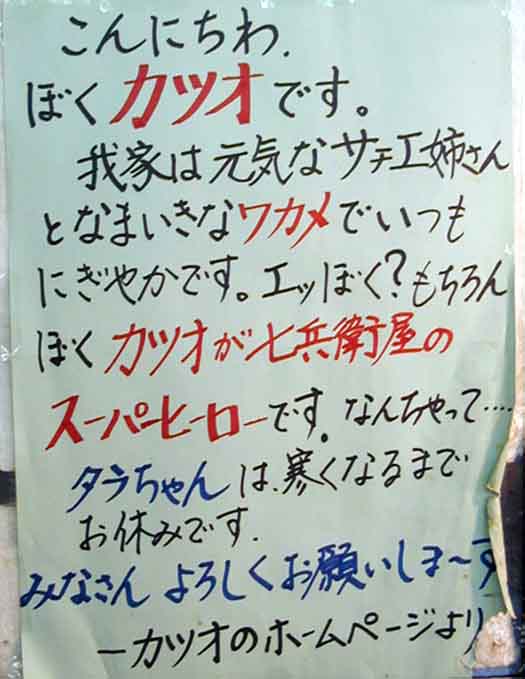 こんにちわ.
ぼくカツオです。
我家は元気なサチエ姉さん
となまいきなワカメでいつも
にぎやかです。エッぼく?もちろん
ぼくカツオが七兵衛屋の
スーパーヒーローです。なんちゃって....
タラちゃんは、寒くなるまで
お休みです.
みなさんよろしくお願いしま〜す
ーカツオのホームページより